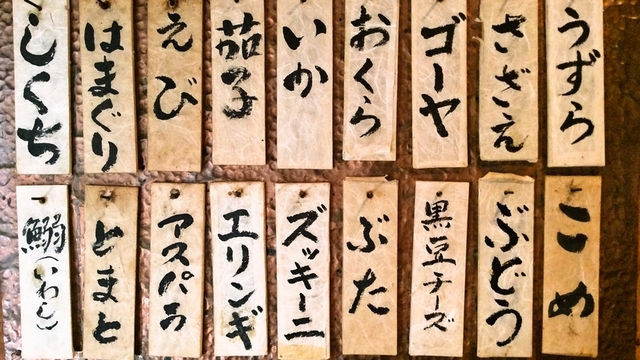 うずら
さざえ
ゴーヤ
おくら
いか
茄子
えび
はまぐり
しくち
こめ
ぶどう
黒豆チーズ
ぶた
ズッキーニ
エリンギ
アスパラ
とまと
鰯(いわし)